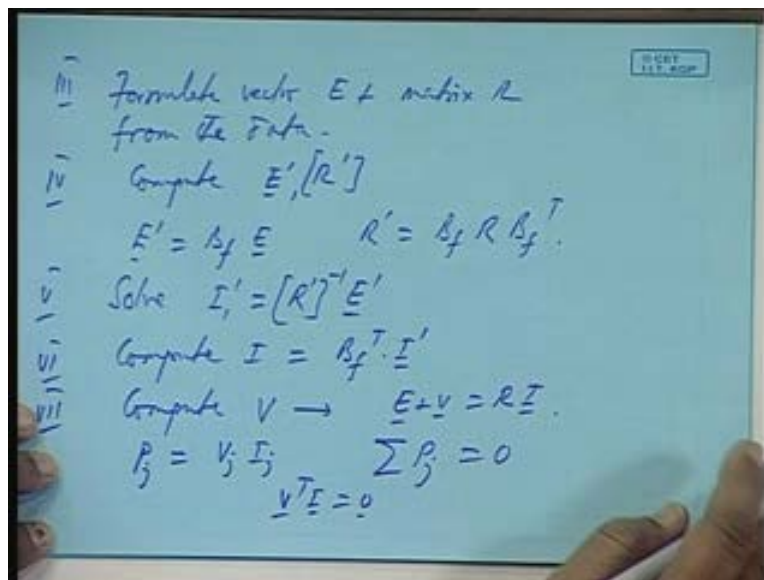 © CET
I.I.T. KGP
III Formulate vector E + matrix R
from the data.
IV Compute E', [R']
E' = B_f E R' = B_f R B_f^T.
V Solve I' = [R']^-1 E'
VI Compute I = B_f^T . I'
VII Compute V → E + V = R I.
P_j = V_j I_j ∑ P_j = 0
V^T I = 0